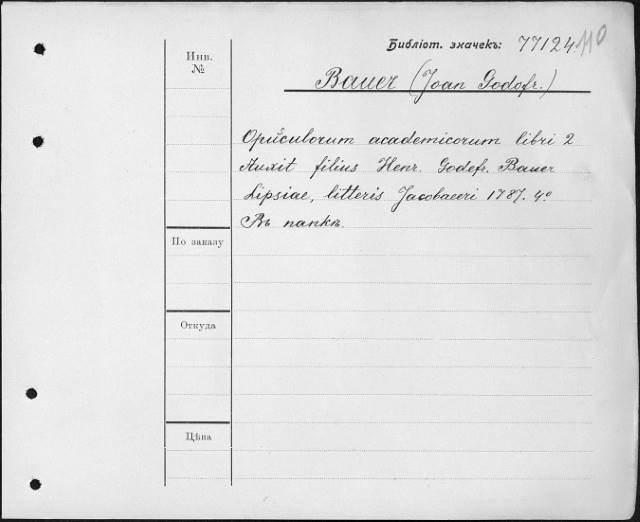 Библіот. значекъ: 77124 110
Инв.
№
Bauer (Joan Godofr.)
Opusculorum academicorum libri 2
Auxit filius Henr. Godefr. Bauer
Lipsiae, litteris Jacobaeeri 1787. 4º
Въ папкѣ.
По заказу
Откуда
Цѣна